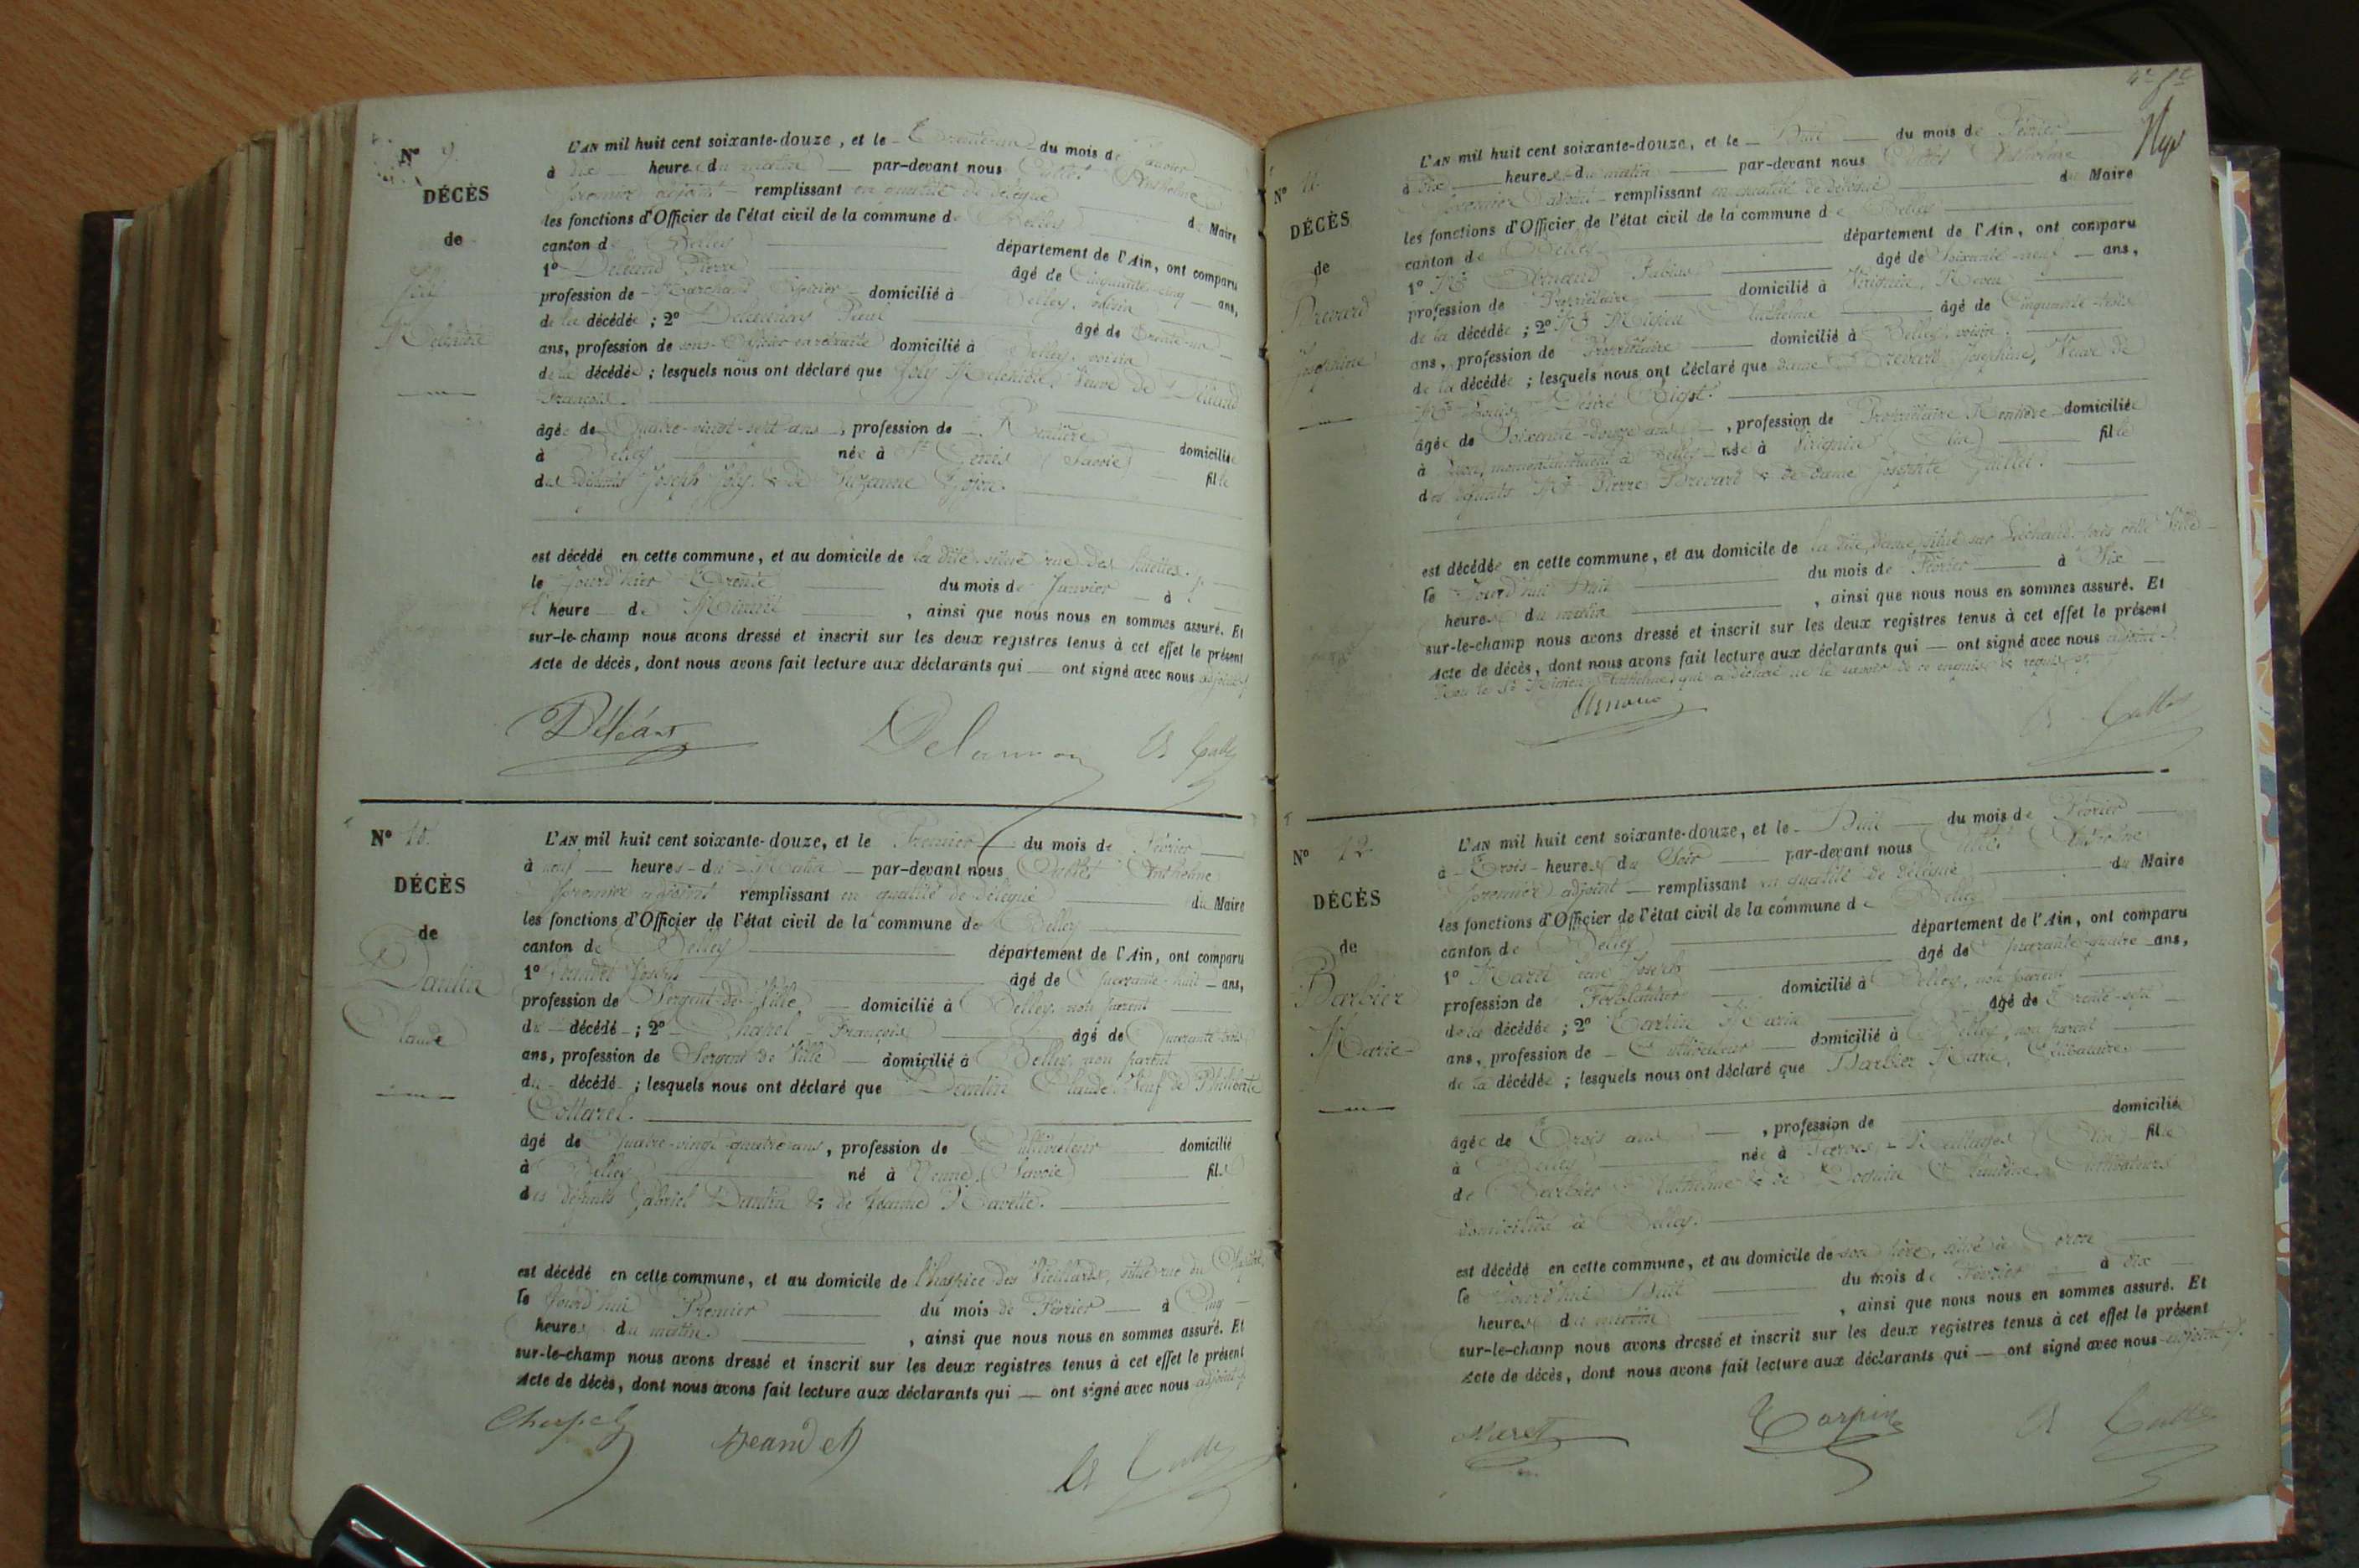 N° 9.
DÉCÈS
de
Joly
L'AN mil huit cent soixante-douze, et le Trente-un du mois de Janvier
à dix heures du matin par-devant nous Anthelme
premier adjoint remplissant en qualité de délégué
du Maire
les fonctions d'Officier de l'état civil de la commune de Belley
canton de Belley département de l'Ain, ont comparu
1° Pierre âgé de Cinquante-cinq ans,
profession de Marchand Epicier domicilié à Belley, voisin
de la décédée ; 2° Paul âgé de Trente-un
ans, profession de sous-Officier en retraite domicilié à Belley, voisin
de la décédée ; lesquels nous ont déclaré que Joly Veuve de
François.
âgée de Quatre-vingt-sept ans, profession de Rentière domiciliée
à Belley née à St Genis (Savoie) fille
des défunts Joseph Joly & de Suzanne
est décédé en cette commune, et au domicile de la dite, situé rue des
le Jourd'hier Trente du mois de Janvier à
heure de Minuit, ainsi que nous nous en sommes assuré. Et
sur-le-champ nous avons dressé et inscrit sur les deux registres tenus à cet effet le présent
Acte de décès, dont nous avons fait lecture aux déclarants qui — ont signé avec nous adjoint
N° 10.
DÉCÈS
de
Dantin
Claude
L'AN mil huit cent soixante-douze, et le Premier du mois de Février
à neuf heures du Matin par-devant nous Anthelme
premier adjoint remplissant en qualité de délégué du Maire
les fonctions d'Officier de l'état civil de la commune de Belley
canton de Belley département de l'Ain, ont comparu
1° Jeandet Joseph âgé de Quarante-huit ans,
profession de Sergent de Ville domicilié à Belley, non parent
du décédé ; 2° François âgé de Quarante-trois
ans, profession de Sergent de Ville domicilié à Belley, non parent
du décédé ; lesquels nous ont déclaré que Dantin Claude, Veuf de Philiberte
Cottarel.
âgé de Quatre-vingt-quatre ans, profession de Cultivateur domicilié
à Belley né à Yenne (Savoie) fils
des défunts Gabriel Dantin & de Jeanne Ravette.
est décédé en cette commune, et au domicile de l'hospice des Vieillards, situé rue du
le Jourd'hui Premier du mois de Février à Cinq
heures du matin, ainsi que nous nous en sommes assuré. Et
sur-le-champ nous avons dressé et inscrit sur les deux registres tenus à cet effet le présent
Acte de décès, dont nous avons fait lecture aux déclarants qui — ont signé avec nous adjoint
Jeandet
N° 11.
DÉCÈS
de
Brevard
Joséphine
L'AN mil huit cent soixante-douze, et le Huit du mois de Février
à Dix heures du matin par-devant nous Anthelme
Premier adjoint remplissant en qualité de délégué du Maire
les fonctions d'Officier de l'état civil de la commune de Belley
canton de Belley département de l'Ain, ont comparu
1° Mr Arnaud Fabius âgé de Soixante-neuf ans,
profession de Propriétaire domicilié à Virignin, Neveu
de la décédée ; 2° Mr Anthelme âgé de Cinquante-trois
ans, profession de Propriétaire domicilié à Belley, voisin
de la décédée ; lesquels nous ont déclaré que dame Brevard Joséphine, Veuve de
Mr Louis Désiré
âgée de Soixante-douze ans, profession de Propriétaire Rentière domiciliée
à Lyon, momentanément à Belley née à Virignin (Ain) fille
des défunts Mr Pierre Brevard & de dame Josephte
est décédée en cette commune, et au domicile de la dite dame, situé sur
le Jourd'hui Huit du mois de Février à Six
heures du matin, ainsi que nous nous en sommes assuré. Et
sur-le-champ nous avons dressé et inscrit sur les deux registres tenus à cet effet le présent
Acte de décès, dont nous avons fait lecture aux déclarants qui — ont signé avec nous adjoint
Non le Sr Anthelme, qui a déclaré ne le savoir de ce enquis & requis
Arnaud
N° 12.
DÉCÈS
de
Barbier
Marie
L'AN mil huit cent soixante-douze, et le Huit du mois de Février
à Trois heures du Soir par-devant nous Anthelme
premier adjoint remplissant en qualité de délégué du Maire
les fonctions d'Officier de l'état civil de la commune de Belley
canton de Belley département de l'Ain, ont comparu
1° Maret Joseph âgé de Quarante-quatre ans,
profession de Ferblantier domicilié à Belley, non parent
de la décédée ; 2° Marin âgé de Trente-sept
ans, profession de Cultivateur domicilié à Belley, non parent
de la décédée ; lesquels nous ont déclaré que Barbier Marie, Célibataire.
âgée de Trois ans, profession de domiciliée
à Belley née à (Ain) fille
de Barbier Anthelme & de Claudine, Cultivateurs
domiciliés à Belley.
est décédé en cette commune, et au domicile de son père, situé à Coron
le Jourd'hui Huit du mois de Février à Dix
heures du matin, ainsi que nous nous en sommes assuré. Et
sur-le-champ nous avons dressé et inscrit sur les deux registres tenus à cet effet le présent
Acte de décès, dont nous avons fait lecture aux déclarants qui — ont signé avec nous adjoint
Maret